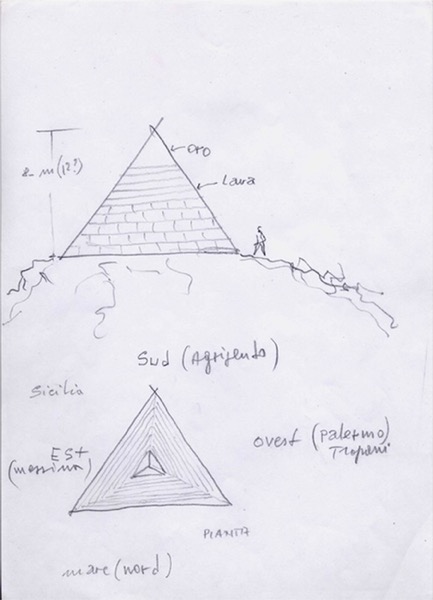 oro
m(12?)
Lava
Sud (Agrigento)
Sicilia
Est
(messina)
ovest (palermo)
Trapani
PIANTA
mare (nord)